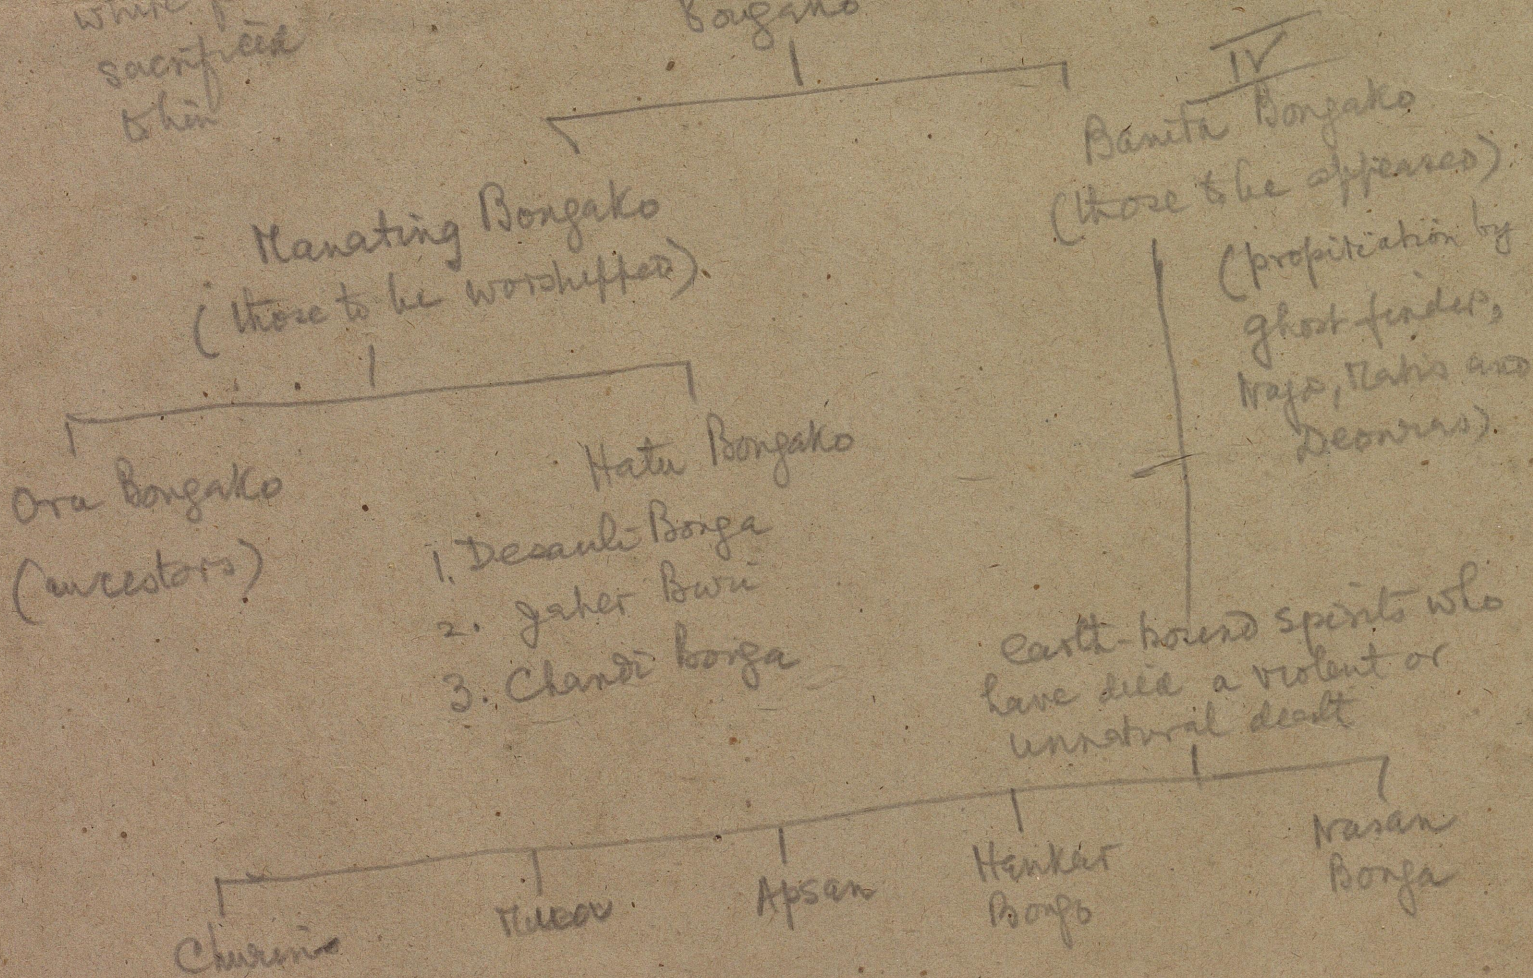 sacrificed
to him
Bongako
IV
Banita Bongako
(those to be appeased)
(propitiation by
ghost-finder,
Najo, Matis and
Deonras).
Manating Bongako
(those to be worshipped).
Ora Bongako
(ancestors)
Hatu Bongako
1. Desauli Bonga
2. Jaher Buri
3. Chandi Bonga
earth-bound spirits who
have died a violent or
unnatural death
Churin
Mua
Apsan
Hankar
Bonga
Nasan
Bonga